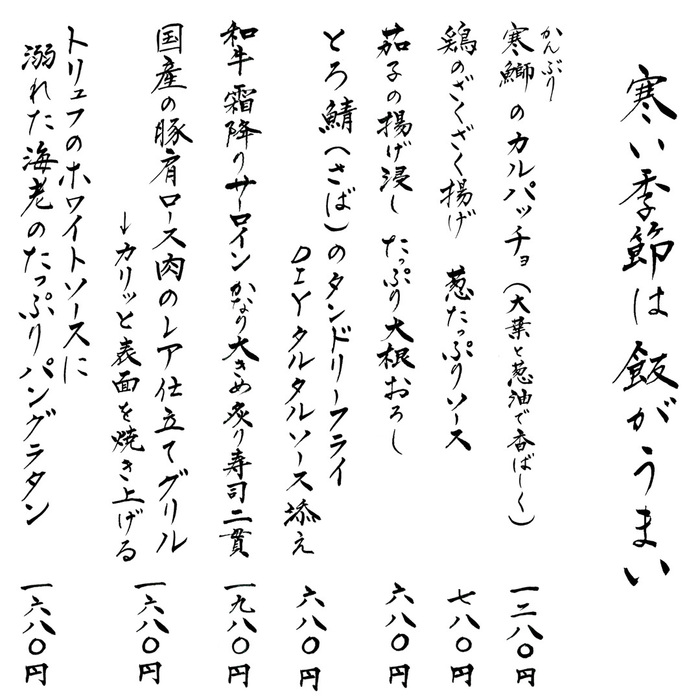 寒い季節は飯がうまい
かんぶり
寒鰤のカルパッチョ(大葉と葱油で香ばしく) 一二八〇円
鶏のざくざく揚げ 葱たっぷりソース 七八〇円
茄子の揚げ浸し たっぷり大根おろし 六八〇円
とろ鯖(さば)のタンドリーフライ
DIYタルタルソース添え 六八〇円
和牛霜降りサーロインかなり大きめ炙り寿司二貫 一九八〇円
国産の豚肩ロース肉のレア仕立てグリル 一六八〇円
↓カリッと表面を焼き上げる
トリュフのホワイトソースに
溺れた海老のたっぷりパングラタン 一六八〇円